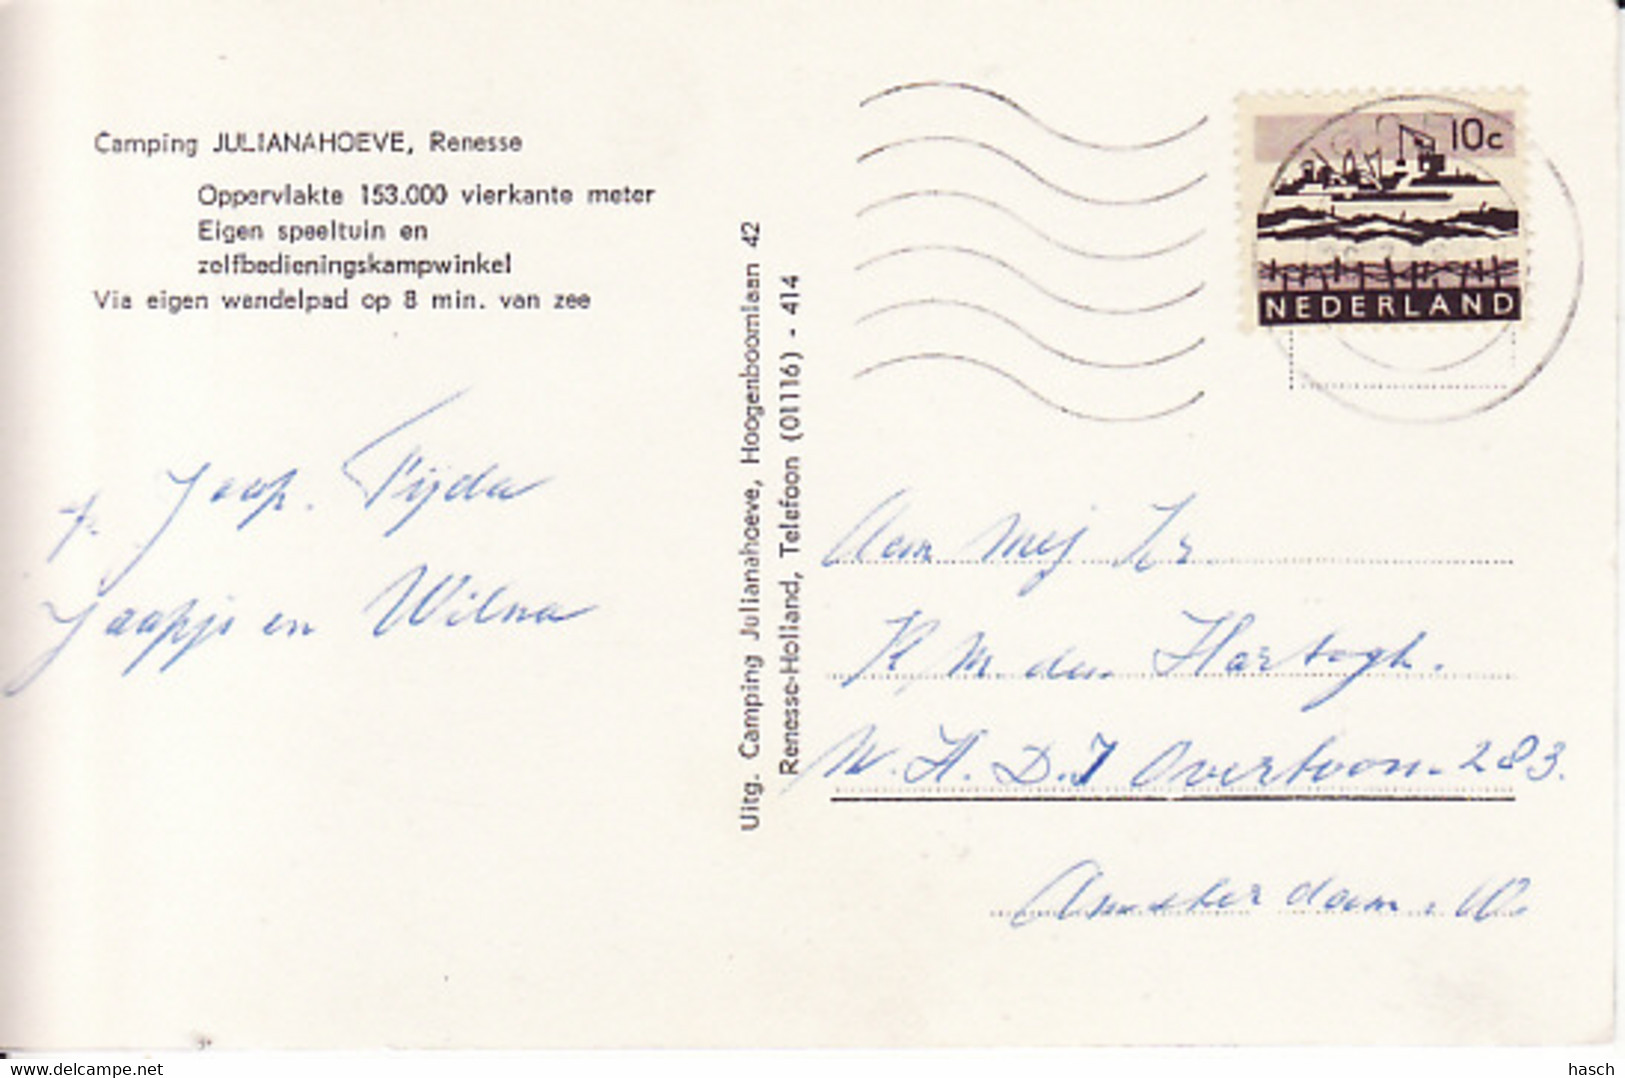 Camping JULIANAHOEVE, Renesse
Oppervlakte 153.000 vierkante meter
Eigen speeltuin en
zelfbedieningskampwinkel
Via eigen wandelpad op 8 min. van zee
Jaap. Tijda
Jaapje en Wilna
Uitg. Camping Julianahoeve, Hoogenboomlaan 42
Renesse-Holland, Telefoon (01116) - 414
10c
NEDERLAND
Aan Mej
M. den Hartogh.
W.H.D.I Overtoom 283.
Amsterdam. W.
hasch
www.delcampe.net